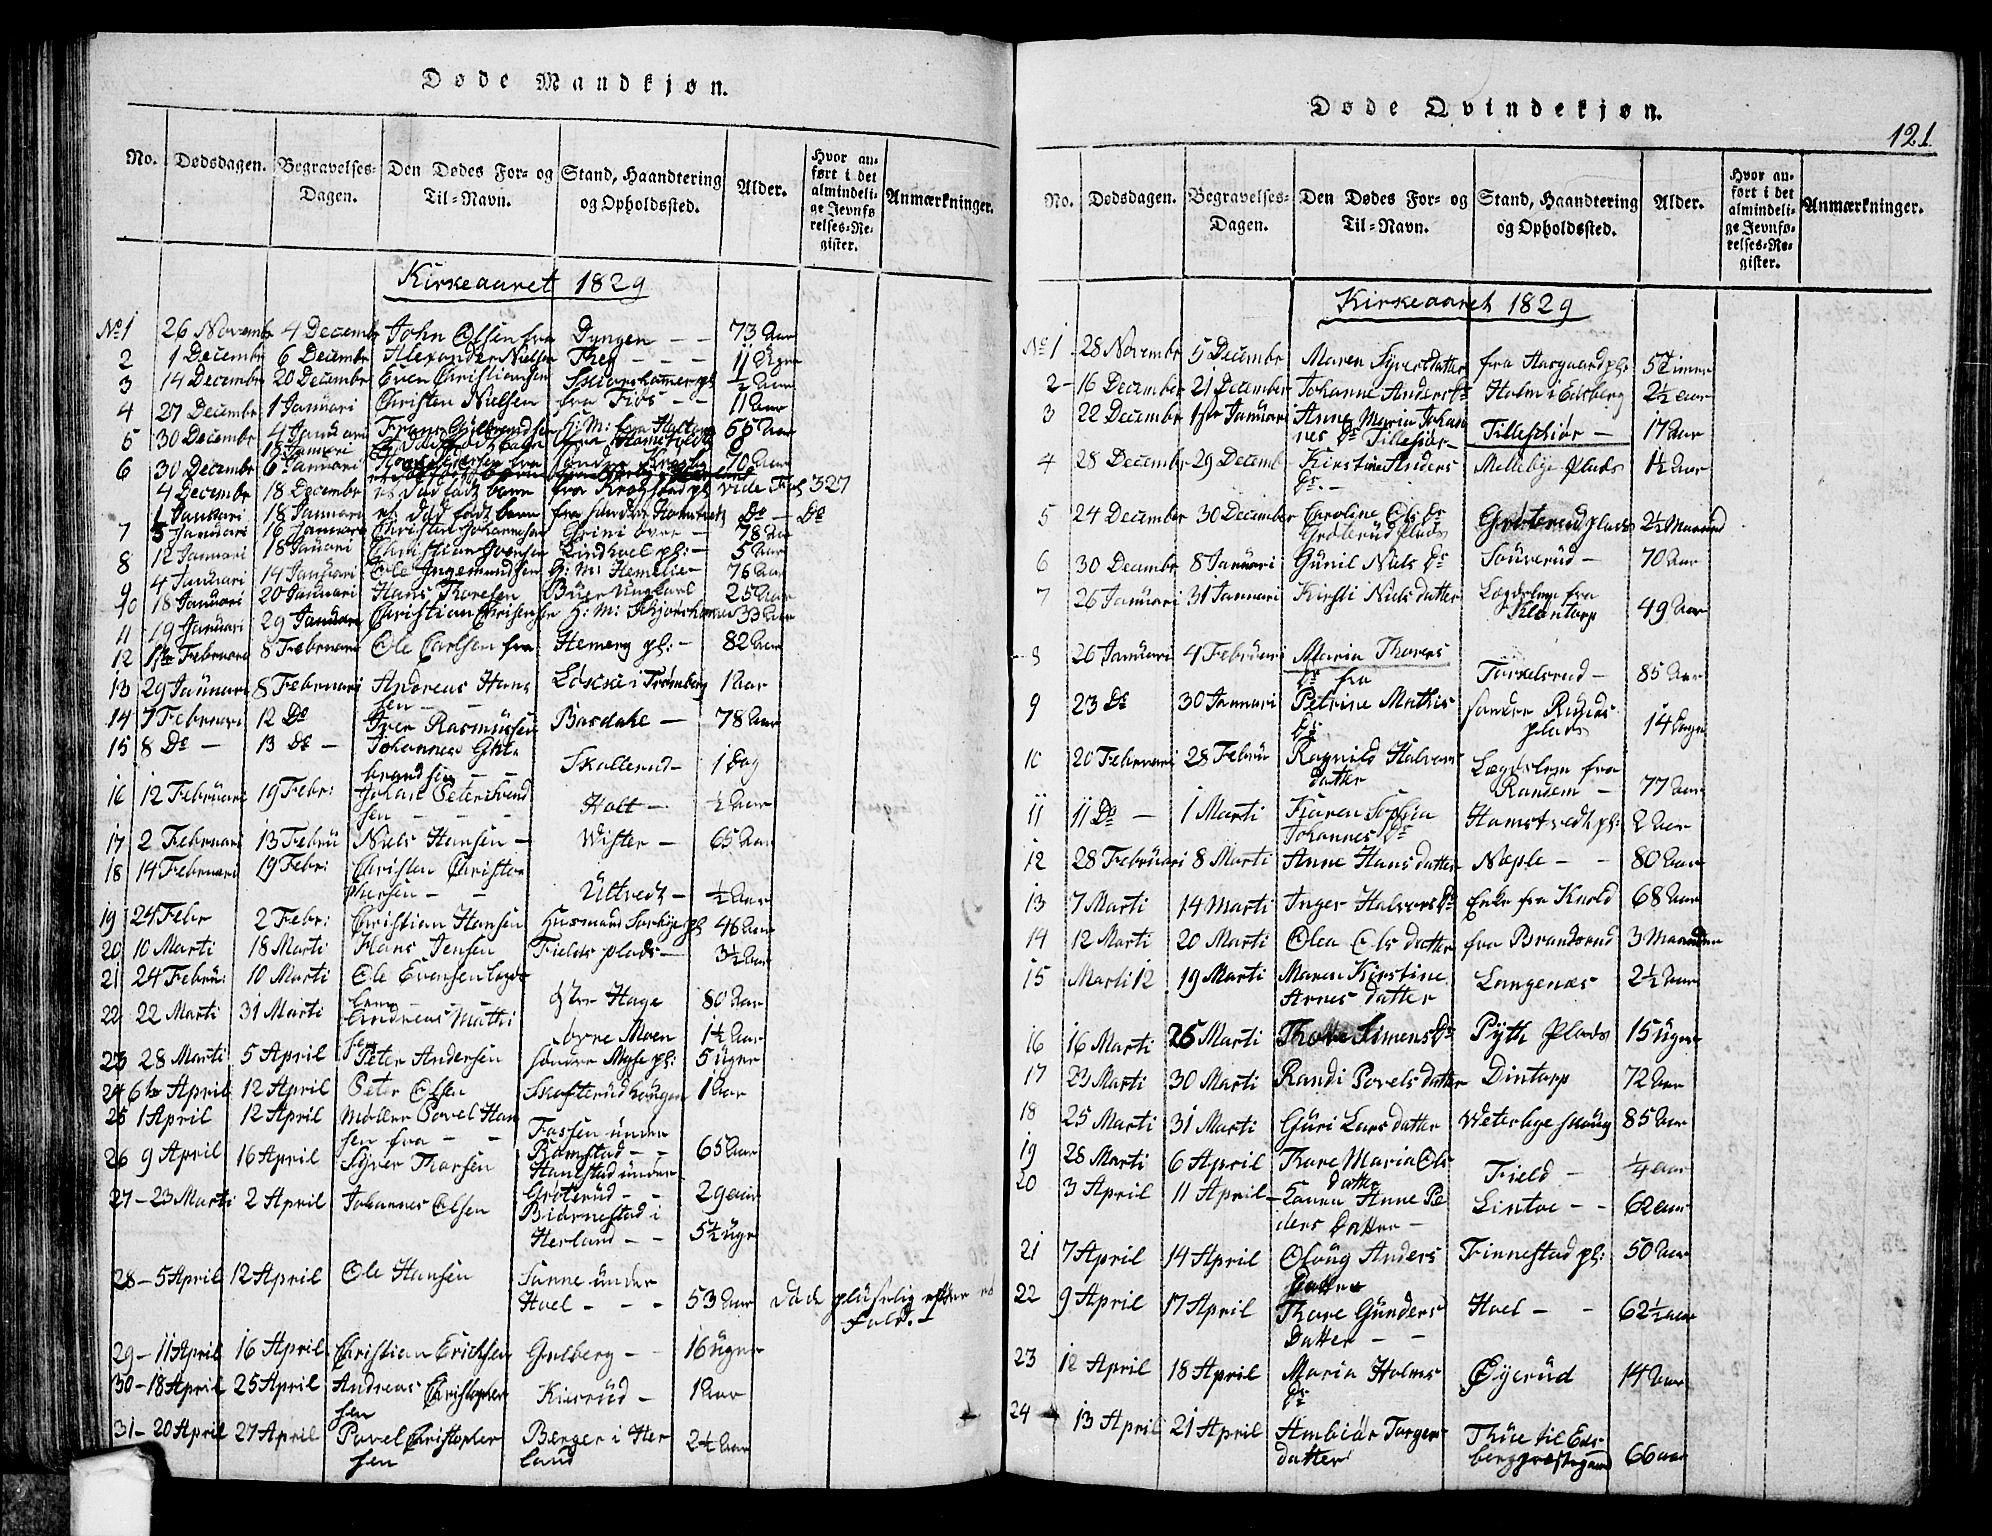 Døde Mandkjøn.
No. Dødsdagen. Begravelses-Dagen. Den Dødes For- og Til-Navn. Stand, Haandtering og Opholdssted. Alder. Hvor anført i det almindelige Jevnførelses-Register. Anmærkninger.
Kirkeaaret 1829
No 1 26 Novembr 4 Decembr John Olsen fra Dyngen - - 73 Aar
2 1 Decembr 6 Decembr Alexander Nielsen 11 Ugr
3 14 Decembr 20 Decembr Even Christiansen Skiørshamer pl ½ Aar
4 27 Decembr 1 Januari Christen Nielsen fra Fiøs - - 11 Aar
5 30 Decembr 4 Januari Frans Gulbrandsen H: M: fra 66 Aar
6 30 Decembr 6 Januari søndre 70 Aar
4 Decembr 18 Decembr et død født barn fra Krogstad pl vide Fol 327
1 Januari 18 Januari et død født barn fra søndre Homstvedt Do - Do
7 5 Januari 16 Januari Christen Johannesen Grini øvre - 78 Aar
8 12 Januari 18 Januari Christian Iversen Lindhoel pl: - 5 Aar
9 4 Januari 14 Januari Ole Ingemundsen H: M: Hemelie - 76 Aar
10 18 Januari 20 Januari Hans Thoresen Buer Ungkarl 25 Aar
11 19 Januari 29 Januari Christian Christensen H: M: Skjørshamer 33 Aar
12 1ste Februari 8 Februari Ole Carlsen fra Hemeng pl: - 82 Aar
13 29 Januari 8 Februari Andreas Hans Løkke i Trømborg 1 Aar
sen - -
14 7 Februari 12 Do Iver Rasmussen Basdahe - 78 Aar
15 8 Do - 13 Do - Johannes Gule
brandsen - - Skallerud - 1 Dag
16 12 Februari 19 Febr: Johan Peter Svend
sen - - - Holt - ½ Aar
17 2 Februari 13 Febru Niels Hansen - Wister - 65 Aar
18 14 Februari 19 Febr: Christen Christo
phersen - - Ultvedt - ½ Aar
19 24 Febr 2 Febr: Christian Hansen Husmand 46 Aar
20 10 Marti 18 Marti Hans Jensen Fields plads - 3½ Aar
21 24 Febru: 10 Marti Ole Evensen Legds
lem - - østre Hage 80 Aar
22 22 Marti 31 Marti Andreas Mathi
sen øvre Moen 1½ Aar
23 28 Marti 5 April Peter Andersen søndre Mysse pl: 5 ugr
24 6te April 12 April Peter Olsen Skofterud haugen 1 Aar
25 1 April 12 April Møller Povel Han
sen fra - - Fossen under
Ramstad - - 65 Aar
26 9 April 16 April Syver Thorsen Hanestad under
Grøterud - - 29 aar
27 - 23 Marti 2 April Johannes Olsen Biørnestad i
Herland - - 5½ ugr
28 - 5 April 12 April Ole Hansen Sanne under
Hoel - - - 53 Aar døde pludselig efter et
Fald. -
29 - 11 April 16 April Christian Erichsen Gulberg - 16 ugr
30 - 18 April 25 April Andreas Christopher
sen Kiserud - 1 Aar
31 - 20 April 27 April Povel Christopher
sen Berger i Her
land 2½ Aar
Døde Qvindekjøn.
121
No. Dødsdagen. Begravelses-Dagen. Den Dødes For- og Til-Navn. Stand, Haandtering og Opholdssted. Alder. Hvor anført i det almindelige Jevnførelses-Register. Anmærkninger.
Kirkeaaret 1829
No 1 28 Novembr 5 Decembr Maren Syvertsdatter fra Aasgaard pl: 5 Timer
2 - 16 Decembr 21 Decembr Johanne Anders Dr Holm i Edsberg 2½ aar
3 22 Decembr 1ste Januari Anne Maria Johan
nes Dr Tillesiør Tilleschiør - 17 Aar
4 28 Decembr 29 Decemb Kirstine Anders Mellebye Plads 1½ Aar
Dr. -
5 24 Decembr 30 Decembr Caroline Ols Dr Grøterud plads 2½ Maaned
Grøterud plads
6 30 Decembr 8 Januari Gunil Niels Dr Sauverud - 70 Aar
7 26 Januari 31 Januari Kirsti Niels datter Lægdslem fra
Klentorp 49 Aar
8 26 Januari 4 Februari Maria Thores
Dr fra Torkelsrud - 85 Aar
9 23 Do 30 Januari Petrine Mathis
Dr søndre Ruuds
plads 14 Dage
10 20 Februari 28 Febru Ragnild Halvors
datter Lægdslem fra
Randem - 77 Aar
11 11 Do - 1 Marti Karen Sophia
Johannes Dr Homstvedt pl: 2 Aar
12 28 Februari 8 Marti Anne Hans datter Næple - - 80 Aar
13 7 Marti 14 Marti Inger Halvors Dr Enke fra Knold 68 Aar
14 12 Marti 20 Marti Olea Ols datter fra Brandsrud 3 Maaneder
15 Marti 12 19 Marti Maren Kirstine
Arnes datter Langenæs 2½ Aar
16 16 Marti 25 Marti Thore Simens Dr Pyth Plads 15 ugr
17 23 Marti 30 Marti Randi Povels datter Dintorp 72 Aar
18 25 Marti 31 Marti Guri Lars datter Weterlege skoug 85 Aar
19 28 Marti 6 April Thore Maria Ols
datter Field - ¼ aar
20 3 April 11 April - Anne Pe
ders Datter - Lintoe - - 62 aar
21 7 April 14 April Oloug Anders
Datter Finnestad pl: 50 Aar
22 9 April 17 April Thore Gunders
Datter - - Hoel - - 62½ aar
23 12 April 18 April Maria Holms
Dr Øyerud 14 Aar
24 13 April 21 April Ambiør Torger
datter Thiue til Eds
berg præstegaard 66 aar